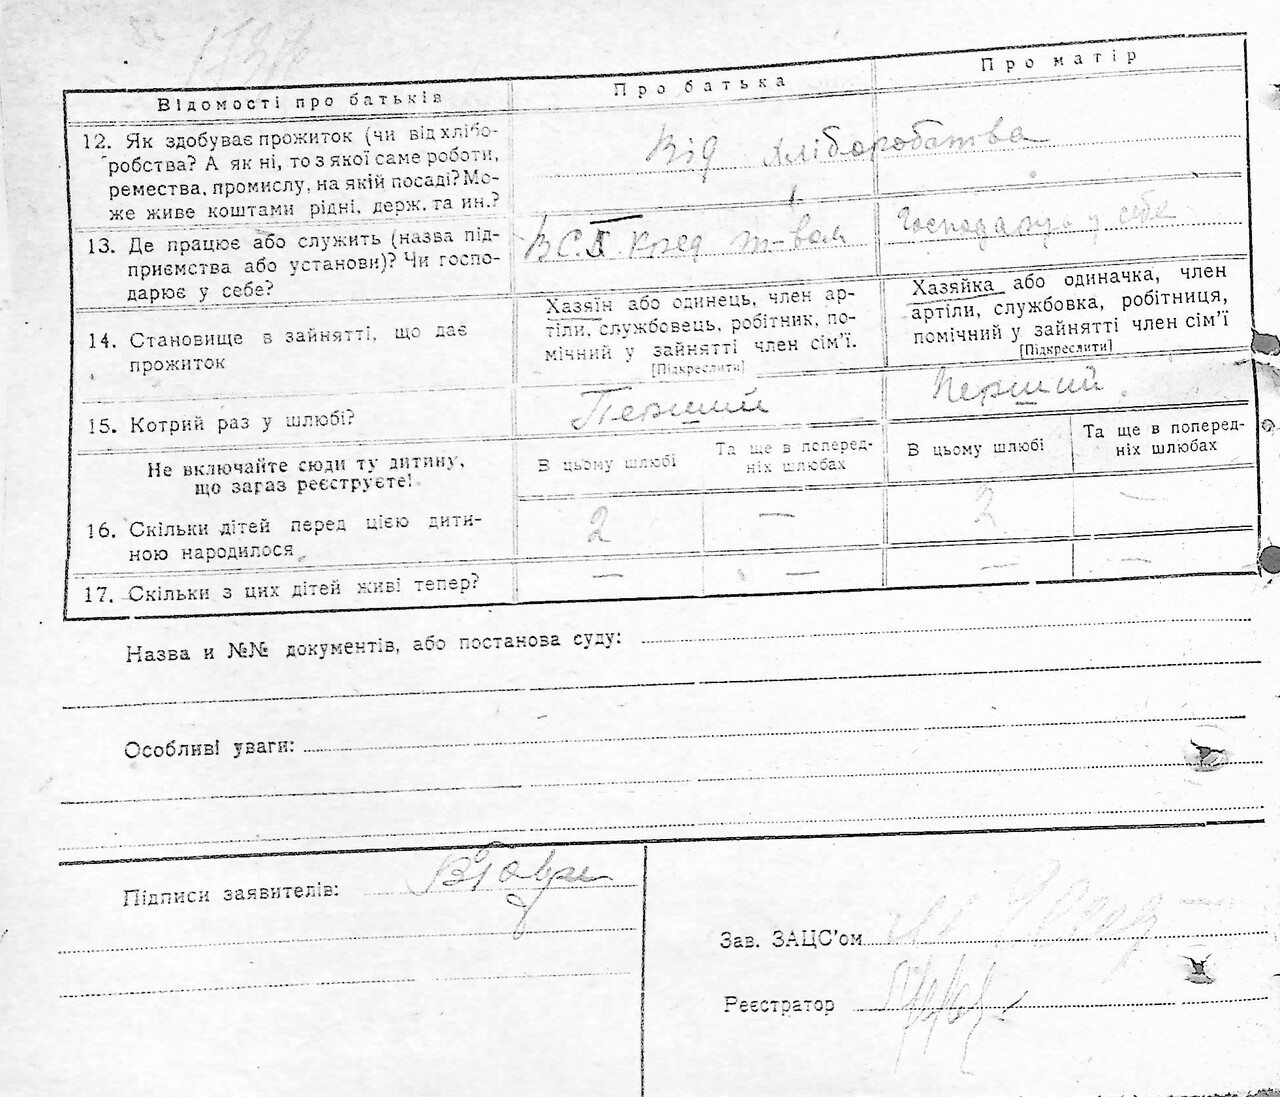 Відомості про батьків
Про батька
Про матір
12. Як здобуває прожиток (чи від хлібо-
робства? А як ні, то з якої саме роботи,
ремества, промислу, на якій посаді? Мо-
же живе коштами рідні, держ. та ин.?
Від хліборобства
13. Де працює або служить (назва під-
приємства або установи)? Чи госпо-
дарює у себе?
т-вом
у себе
14. Становище в зайнятті, що дає
прожиток
Хазяїн або одинець, член ар-
тіли, службовець, робітник, по-
мічний у зайнятті член сім'ї.
[Підкреслити]
Хазяйка або одиначка, член
артіли, службовка, робітниця,
помічний у зайнятті член сім'ї
[Підкреслити]
15. Котрий раз у шлюбі?
Перший
Перший
Не включайте сюди ту дитину,
що зараз реєструєте!
В цьому шлюбі
Та ще в поперед-
ніх шлюбах
В цьому шлюбі
Та ще в поперед-
ніх шлюбах
16. Скільки дітей перед цією дити-
ною народилося
2 — 2 —
17. Скільки з цих дітей живі тепер?
— — — —
Назва и №№ документів, або постанова суду:
Особливі уваги:
Підписи заявителів:
Зав. ЗАЦС'ом
Реєстратор